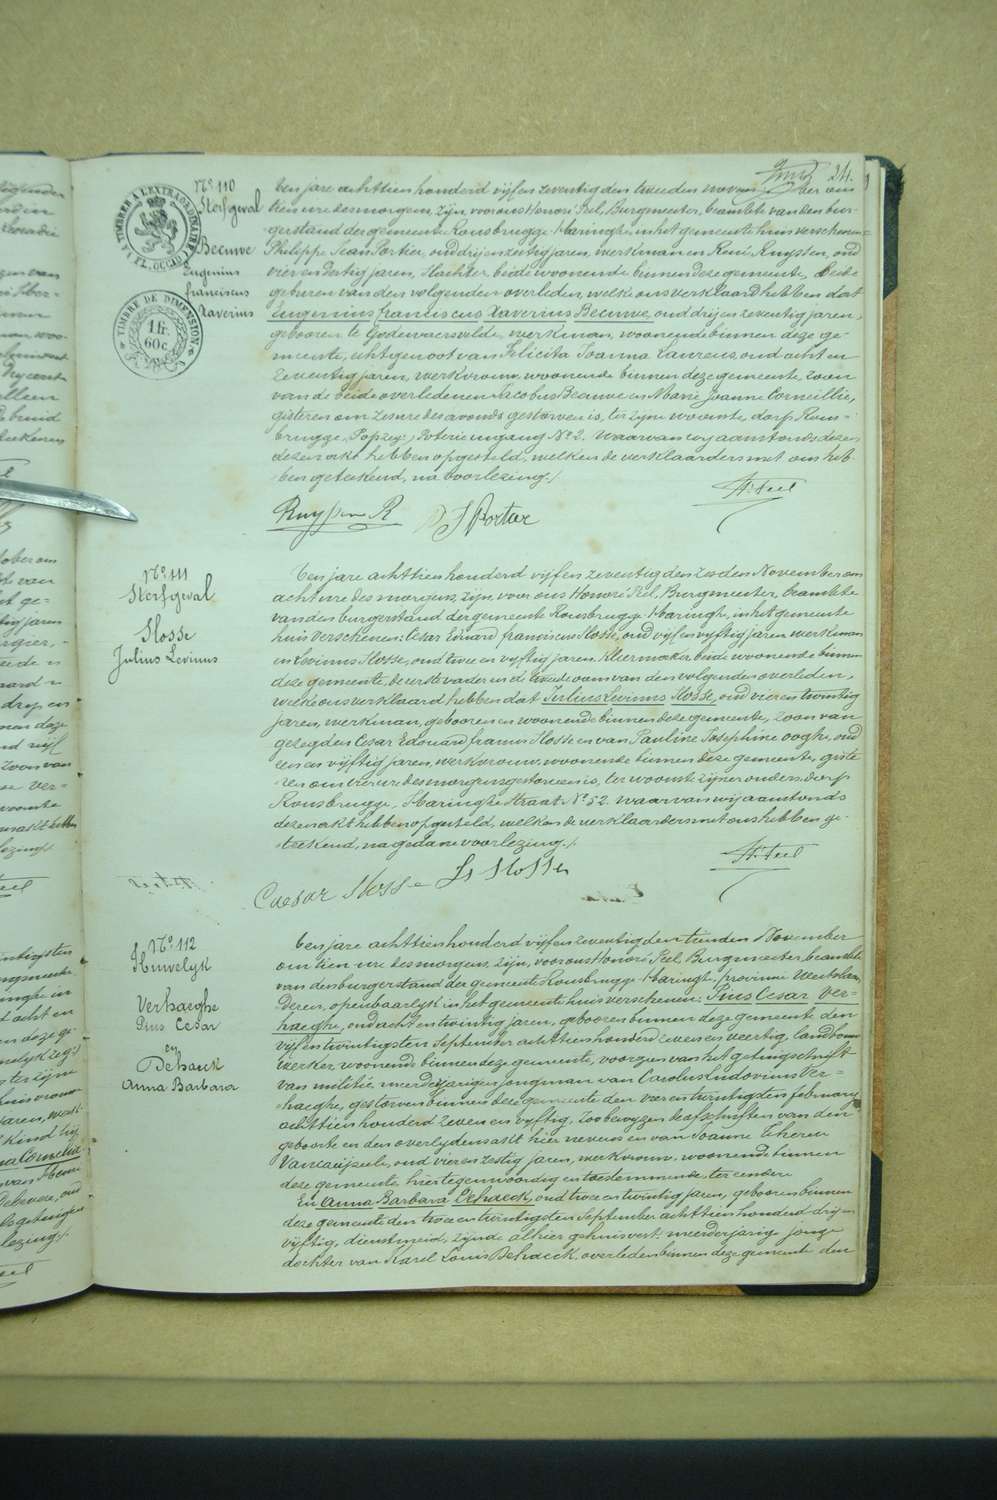 24.
TIMBRE A L'EXTRAORDINAIRE
FL. OCCID.
TIMBRE DE DIMENSION
1 fr.
60 c.
No. 110
Sterfgeval
Becuwe
Eugenius
franciscus
Xaverius
Ten jare achttien honderd vijf en zeventig den tweeden november om
tien ure des morgens, zijn, voor ons Honoré Peel, Burgmeester, beambte van den bur-
gerstand der gemeente Rousbrugge-Haringhe, in het gemeentehuis verschenen
Philippe Jean Portier, oud drij en zestig jaren, werkman en René Ruyssen, oud
vier en dertig jaren, Slachter, beide woonende binnen deze gemeente, beide
geburen van den volgenden overleden, welke ons verklaard hebben dat
Eugenius franciscus Xaverius Becuwe, oud drij en zeventig jaren,
geboren te Godewaersvelde, werkman, woonende binnen deze ge-
meente, echtgenoot van Felicita Joanna Laureus, oud acht en
zeventig jaren, werkvrouw, woonende binnen deze gemeente, zoon
van de beide overledenen Jacobus Becuwe en Marie Joanne Corneillie,
gisteren om zes ure des avonds gestorven is, ter zijne woonste, dorp Rous-
brugge, Poterie ingang No. 2. Waarvan wij aanstonds dezen
dezen akt hebben opgesteld, welken de verklaarders met ons heb-
ben geteekend, na voorlezing./
H. Peel
Ruyssen R
No. 111
Sterfgeval
Hosse
Julius Levinus
Ten jare achttien honderd vijf en zeventig den zesden November om
acht ure des morgens, zijn, voor ons Honoré Peel, Burgmeester, beambte
van den burgerstand der gemeente Rousbrugge-Haringhe, in het gemeente
huis verschenen: Cesar Edouard franciscus Hosse, oud vijf en vijftig jaren werkman
en Levinus Hosse, oud twee en vijftig jaren, kleermaker beide woonende binnen
deze gemeente, de eerste vader en de tweede oom van den volgenden overleden,
welke ons verklaard hebben dat Julius Levinus Hosse, oud vier en twintig
jaren, werkman, geboren en woonende binnen deze gemeente, zoon van
gezegden Cesar Edouard francis Hosse en van Pauline Josephine Ooghe, oud
een en vijftig jaren, werkvrouw, woonende binnen deze gemeente, giste
ren om vier ure des morgens gestorven is, ter woonste zijner ouders, dorp
Rousbrugge, Haringhe Straat No. 52. Waarvan wij aanstonds
dezen akt hebben opgesteld, welken de verklaarders met ons hebben ge-
teekend, na gedane voorlezing./.
H. Peel
Caesar Hosse Ls Hosse
No. 112
Huwelyk
Verhaeghe
Pius Cesar
en
Dehaeck
Anna Barbara
Ten jare achttien honderd vijf en zeventig den tienden November
om tien ure des morgens, zijn, voor ons Honoré Peel, Burgmeester, beambte
van den burgerstand der gemeente Rousbrugge-Haringhe, provincie Westvlaen-
deren, openbaarlyk in het gemeentehuis verschenen: Pius Cesar Ver-
haeghe, oud acht en twintig jaren, geboren binnen deze gemeente den
vijf en twintigsten September achttien honderd zeven en veertig, landbouw
werker, woonende binnen deze gemeente, voorzien van het getuigschrift
van militie, meerderjarigen jongman, van Carolus Ludovicus Ver-
haeghe, gestorven binnen deze gemeente den vier en twintigsten february
achttien honderd zeven en vijftig, zoo bewyzen de afschriften van den
geboorte en den overlydens akt hier nevens en van Joanne Therese
oud vier en zestig jaren, werkvrouw, woonende binnen
deze gemeente, hier tegenwoordig en toestemmende, ter eendere
En Anna Barbara Dehaeck, oud twee en twintig jaren, geboren binnen
deze gemeente den twee en twintigsten September achttien honderd drij en
vijftig, dienstmeid, zijnde alhier gehuisvest, meerderjarige jonge
dochter van Karel Louis Dehaeck, overleden binnen deze gemeente den